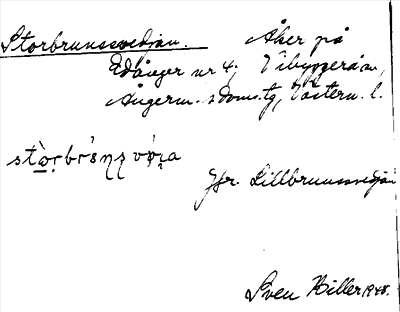 Storbrunssvedjan. Åker på
Edånger nr 4, Vibyggerå sn,
Ångerm. s. doms.tg, Västern. l.
Jfr. Lillbrunnssvedjan
Sven Hiller 1935.